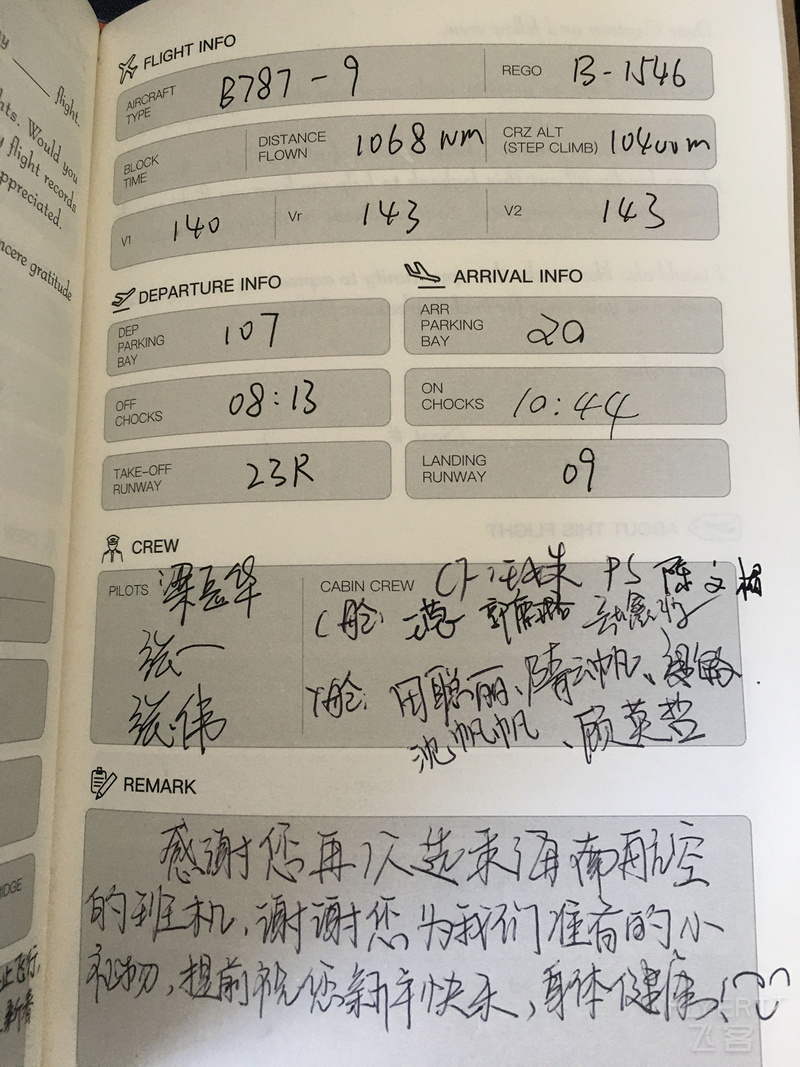 y
flight.
FLIGHT INFO
AIRCRAFT TYPE B787-9 REGO B-1546
hts. Would you
y flight records
ppreciated.
BLOCK TIME DISTANCE FLOWN 1068 NM CRZ ALT (STEP CLIMB) 10400m
V1 140 Vr 143 V2 143
ncere gratitude
DEPARTURE INFO ARRIVAL INFO
DEP PARKING BAY 107 ARR PARKING BAY 20
OFF CHOCKS 08:13 ON CHOCKS 10:44
TAKE-OFF RUNWAY 23R LANDING RUNWAY 09
CREW
PILOTS CABIN CREW CF PS 陈文
张一 C舱:
张伟 Y舱: 田聪丽、隋云帆、
沈帆帆、顾英哲
REMARK
感谢您再次选乘海南航空
的班机,谢谢您为我们准备的小
礼物,提前祝您新年快乐,身体健康!
IDGE
飞行,
飞客